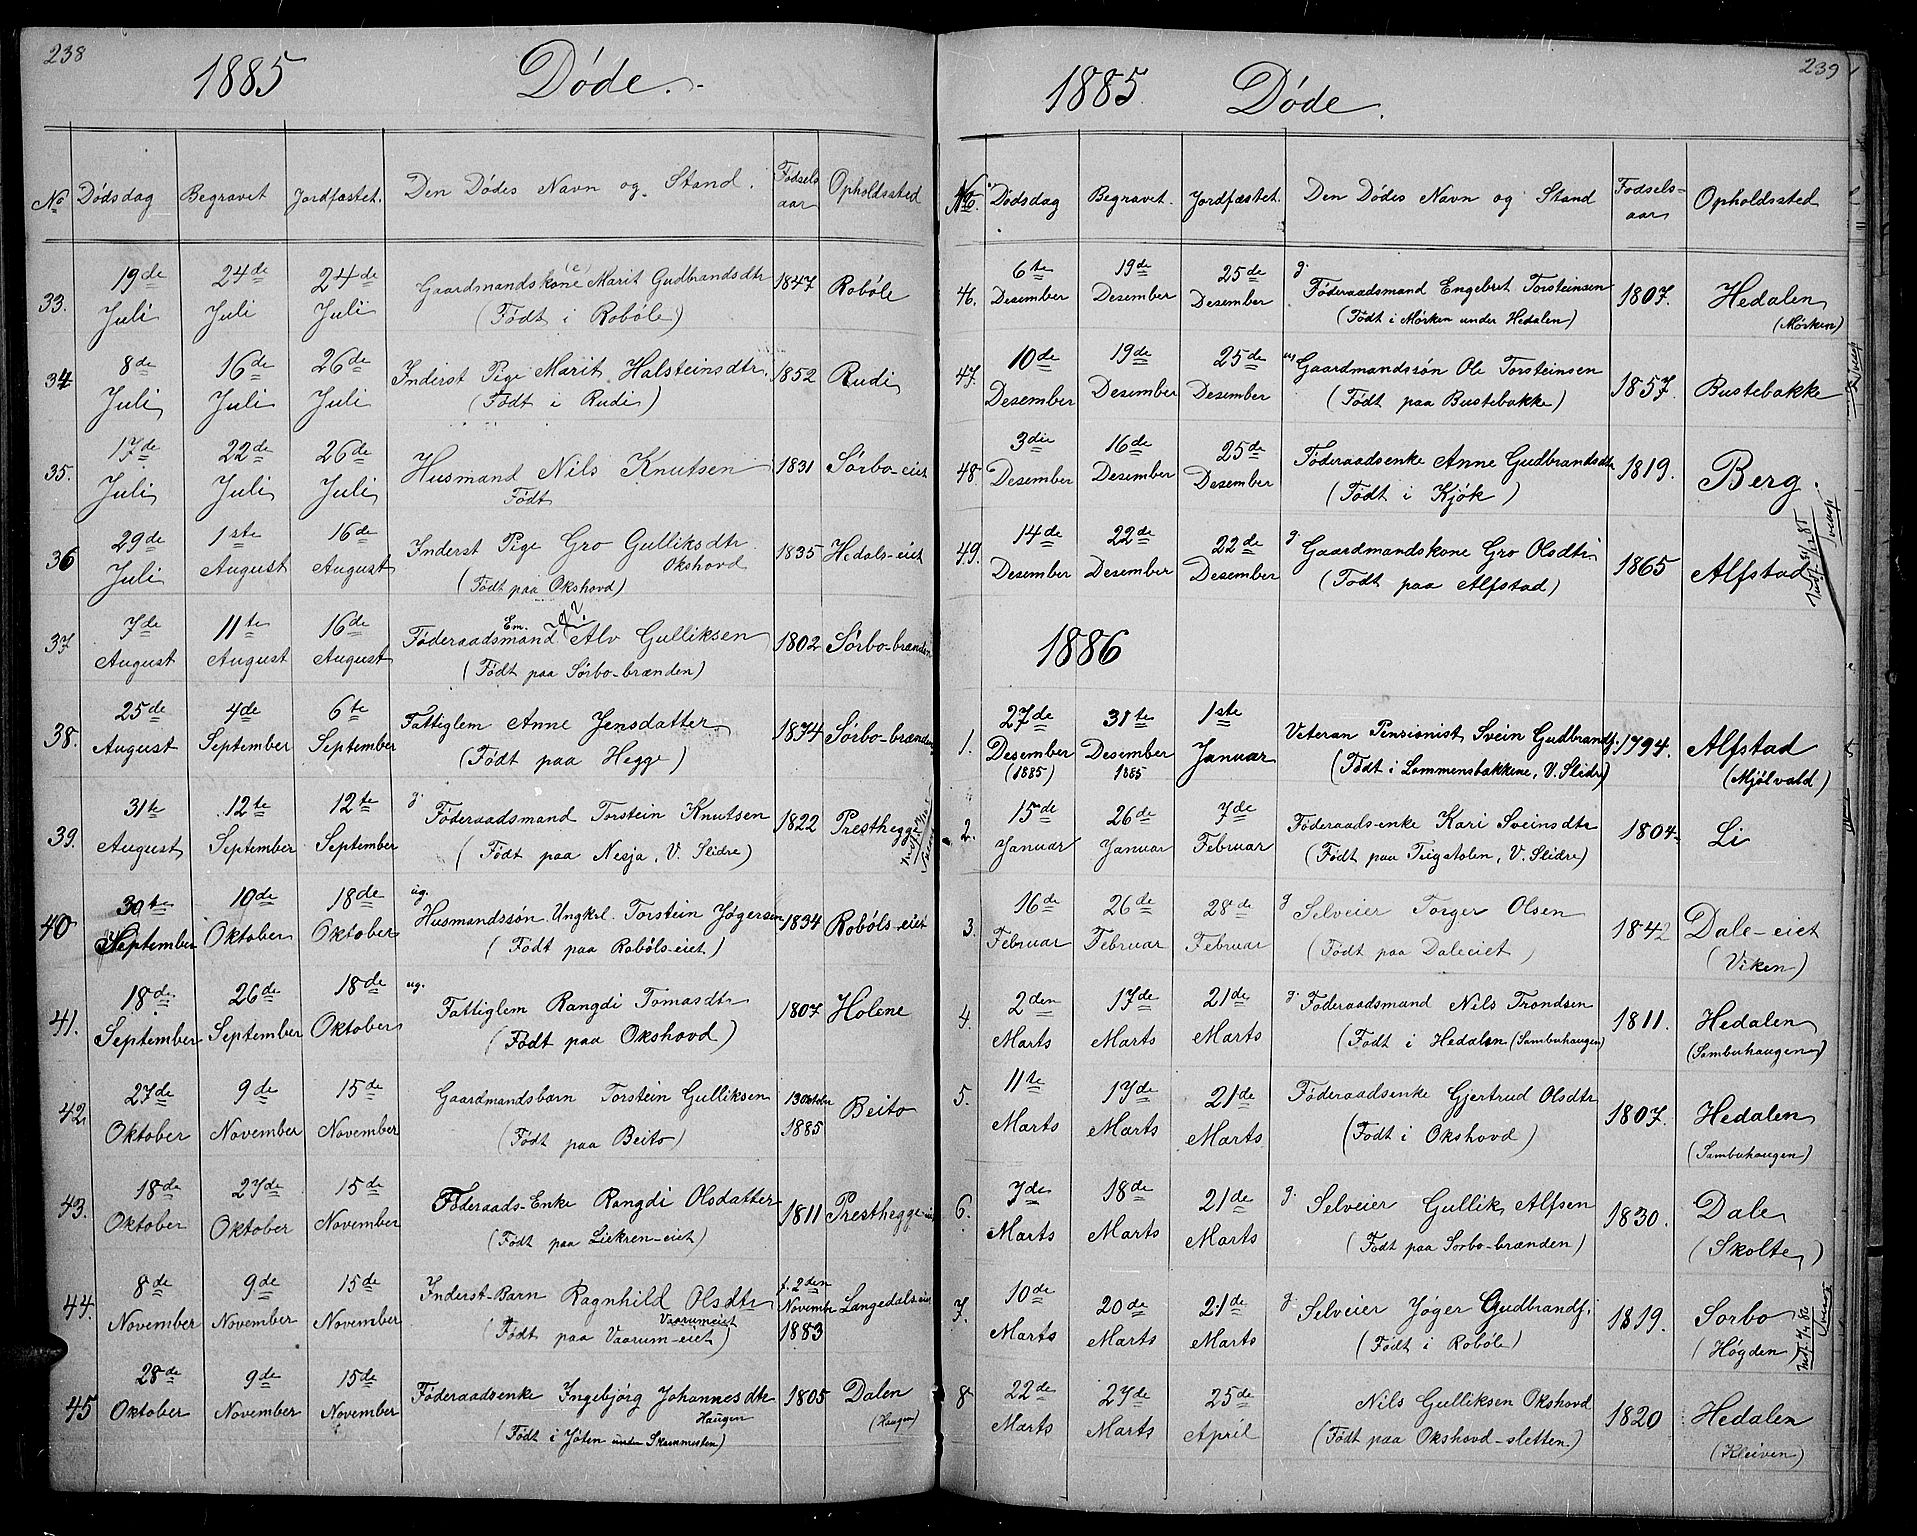 238
1885 Døde.
No Dødsdag Begravet Jordfæstet. Den Dødes Navn og Stand. Fødsels aar Opholdssted
33. 19de Juli 24de Juli 24de Juli Gaardmandskone Marit Gudbrandsdtr 1847 Robøle
(Født i Robøle)
34 8de Juli 16de Juli 26de Juli Inderst Pige Marit Halsteinsdtr. 1852 Rudi
(Født i Rudi)
35. 17de Juli 22de Juli 26de Juli Husmand Nils Knutsen 1831 Sørbo-eiet
Født
36 29de Juli 1ste August 16de August Inderst Pige Gro Gulliksdtr Okshovd 1835 Hedals-eiet
(Født paa Okshovd)
37 7de August 11te August 16de August Em. Føderaadsmand Alv Gulliksen 1802 Sørbo-brænden
(Født paa Sørbo-brænden)
38. 25de August 4de September 6te September Fattiglem Anne Jensdatter 1834 Sørbo-brænden
(Født paa Hegge)
39. 31te August 12te September 12te September g. Føderaadsmand Torstein Knutsen 1822 Presthegge
(Født paa Nesja, V. Slidre)
40 30te September 10de Oktober 18de Oktober ug. Husmandssøn Ungkrl. Torstein Jøgersen 1834 Robøls-eiet
(Født paa Robøls-eiet)
41. 18de September 26de September 18de Oktober ug. Fattiglem Rangdi Tomasdtr 1807 Holene
(Født paa Okshovd)
42 27de Oktober 9de November 15de November Gaardmandsbarn Torstein Gulliksen 13 Oktober 1885 Beito
(Født paa Beito)
43. 18de Oktober 27de Oktober 15de November Føderaads-Enke Rangdi Olsdatter 1811 Presthegge-eie
(Født paa Liekren-eiet)
44. 8de November 9de November 15de November Inderst-Barn Ragnhild Olsdtr Vaarumeiet f. 2den Novembr 1883 Langedals-eie
(Født paa Vaarum-eiet)
45 28de Oktober 9de November 15de November Føderaadsenke Ingebjørg Johannesdtr Haugen 1805 Dalen (Haugen)
(Født i Jøten under Skammesten)
239
1885. Døde.
No. Dødsdag Begravet. Jordfæstet. Den Dødes Navn og Stand Fødsels-aar Opholdssted
46. 6te Desember 19de Desember 25de Desember g. Føderaadsmand Engebret Torsteinsen 1807. Hedalen (Mørken)
(Født i Mørken under Hedalen)
47. 10de Desember 19de Desember 25de Desember ug Gaardmandssøn Ole Torsteinsen 1857. Bustebakke
(Født paa Bustebakke)
48. 3die Desember 16de Desember 25de Desember Føderaadsenke Anne Gudbrandsdtr 1819. Berg.
(Født i Kjøk)
49. 14de Desember 22de Desember 22de Desember g. Gaardmandskone Gro Olsdtr 1865 Alfstad
(Født paa Alfstad)
1886
1. 27de Desember (1885) 31te Desember 1885 1ste Januar Veteran Pensionist Svein Gudbrandf. 1794. Alfstad (Mjølvald)
(Født i Lommensbakkene, V. Slidre)
2. 15de Januar 26de Januar 7de Februar Føderaads-enke Kari Sveinsdtr 1804 Li
(Født paa Trigstolen, V. Slidre)
3. 16de Februar 26de Februar 28de Februar g Selveier Torger Olsen 1842 Dale-eiet (Viken)
(Født paa Daleeiet)
4. 2den Marts 17de Marts 21de Marts g. Føderaadsmand Nils Trondsen 1811. Hedalen (Sambuhaugen)
(Født i Hedalen (Sambuhaugen)
5. 11te Marts 17de Marts 21de Marts Føderaadsenke Gjertrud Olsdtr 1807. Hedalen (Sambuhaugen)
(Født i Okshovd)
6. 7de Marts 18de Marts 21de Marts g. Selveier Gullik Alfsen 1830. Dale (Skolte)
(Født paa Sørbo-brænden)
7. 10de Marts 20de Marts 21de Marts g. Selveier Jøger Gudbrandf. 1819. Sørbo (Høgden)
(Født i Robøle)
8 22de Marts 27de Marts 25de April Nils Gulliksen Okshovd 1820 Hedalen (Kleiven)
(Født paa Okshovd-sletten)